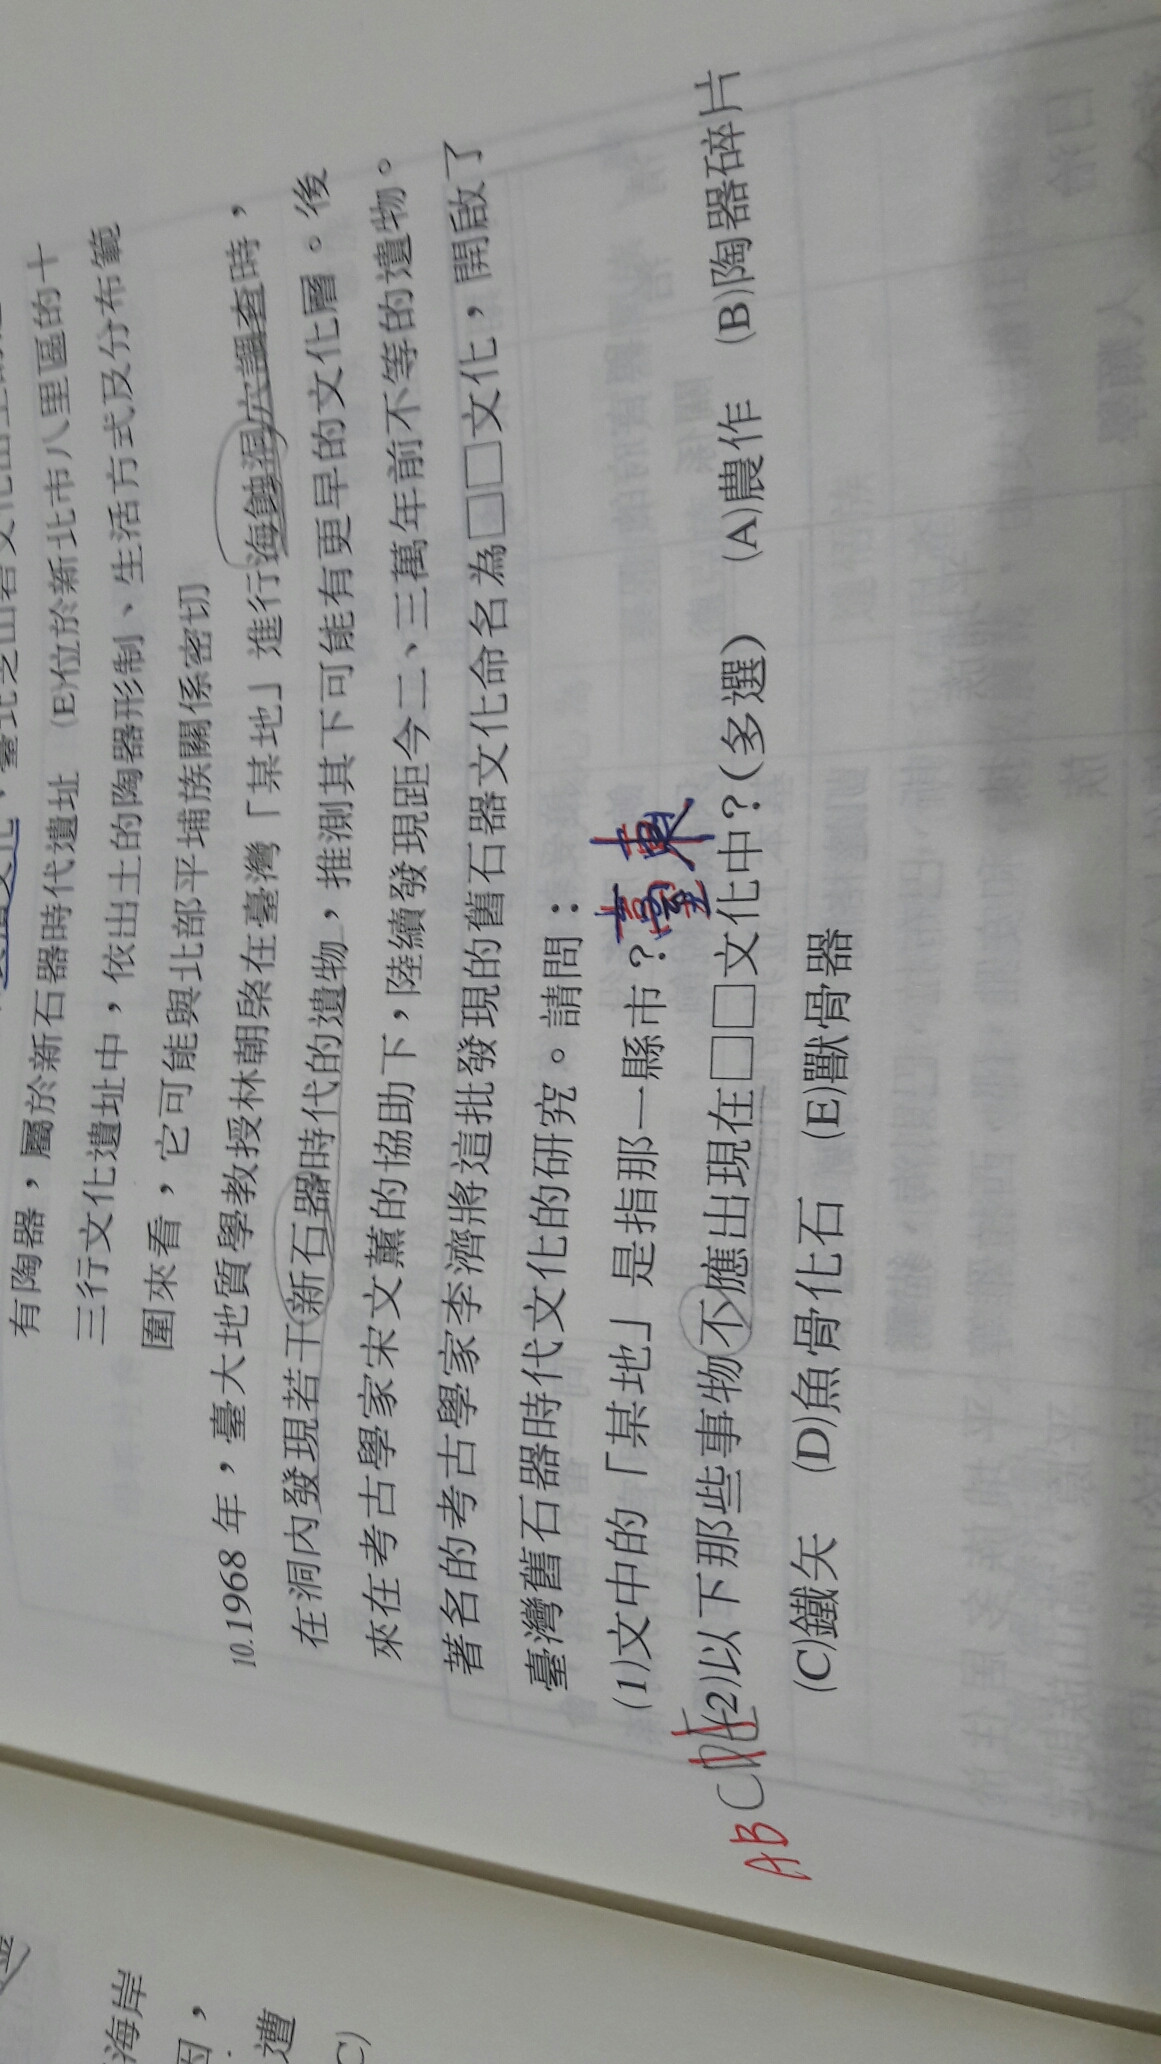 有陶器，屬於新石器時代遺址　(E)位於新北市八里區的十
三行文化遺址中，依出土的陶器形制、生活方式及分布範
圍來看，它可能與北部平埔族關係密切
10.1968 年，臺大地質學教授林朝棨在臺灣「某地」進行海蝕洞穴調查時，
在洞內發現若干新石器時代的遺物，推測其下可能有更早的文化層。後
來在考古學家宋文薰的協助下，陸續發現距今二、三萬年前不等的遺物。
著名的考古學家李濟將這批發現的舊石器文化命名為□□文化，開啟了
臺灣舊石器時代文化的研究。請問：
(1)文中的「某地」是指那一縣市？臺東
ABC (2)以下那些事物不應出現在□□文化中？(多選)　(A)農作　(B)陶器碎片
(C)鐵矢　(D)魚骨化石　(E)獸骨器
海岸
因，
遭
C)